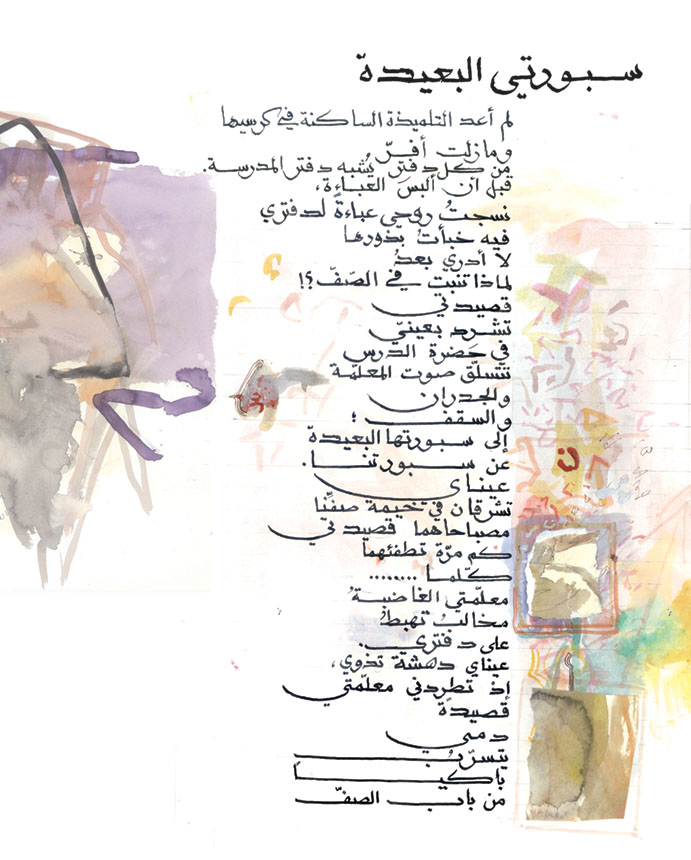 سبورتي البعيدة
لم أعد التلميذة الساكنة في كرسيها
وما زلت أفرّ
من كل دفترٍ يُشبه دفتر المدرسة.
قبل أن ألبسَ العَباءة،
نسجتُ روحي عباءةً لدفتري
فيه خبأتُ بذورها
لا أدري بعدُ
لماذا تنبت في الصّفّ؟!
قصيدتي
تشرد بعينيّ
في حَضرة الدرس
تتسلّق صوت المعلّمة
والجدران
والسقف ؛
إلى سبورتها البعيدة
عن سبورتنا.
عيناي
تشرقان في خيمة صفِّنا
مصباحاهما قصيدتي
كم مرّة تطفئهما
كلّما ........
معلّمتي الغاضبةُ
مخالبُ تهبطُ
على دفتري.
عيناي دهشة تذوي،
إذ تطردني معلّمتي
قصيدةً
دمي
يتسرّبُ
باكياً
من باب الصفّ
ن